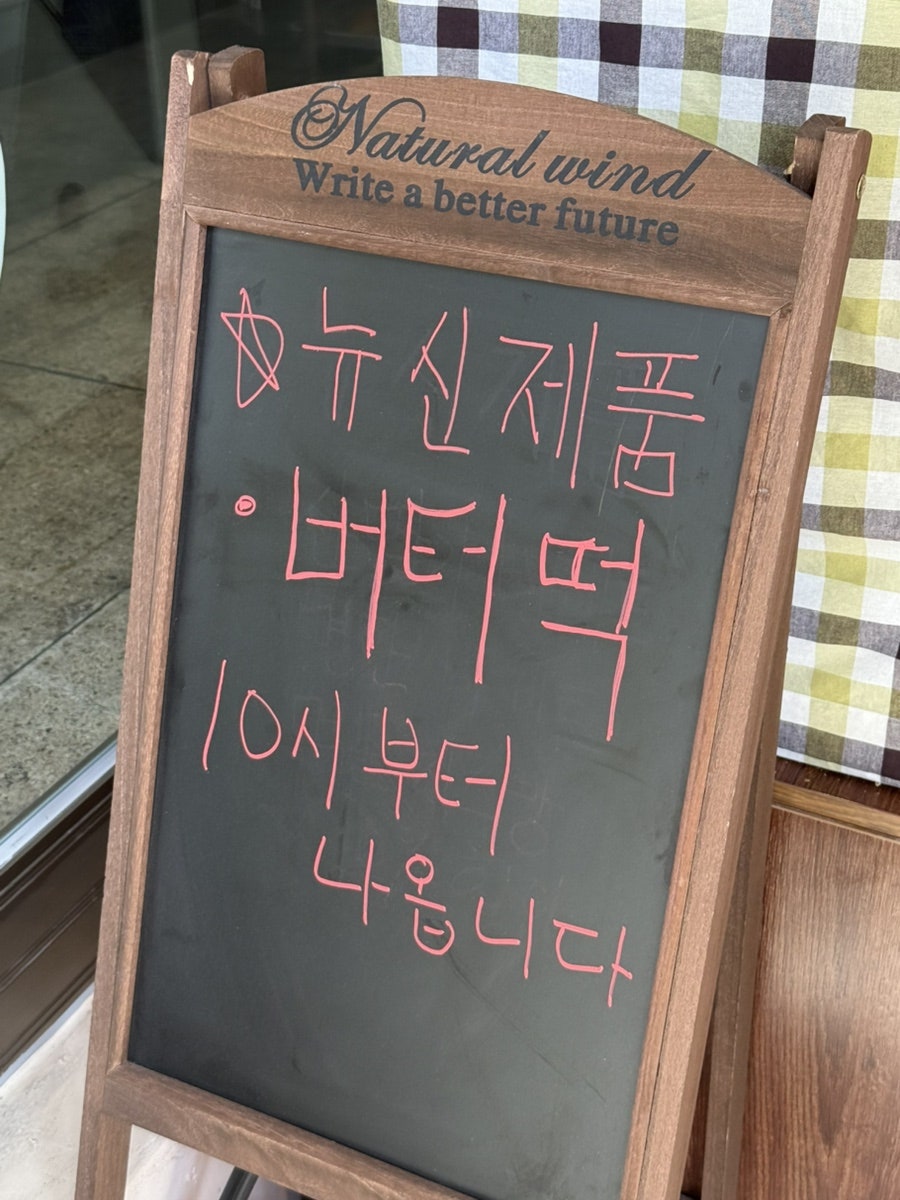 Natural wind
Write a better future
☆뉴신제품
• 버터떡
10시부터
나옵니다